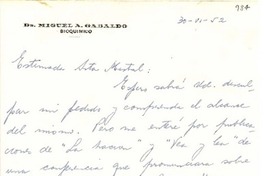 984
Dr. MIGUEL A. GABALDO
BIOQUIMICO
30-VI-52
Estimada Srta Mistral:
Espero sabrá Ud. discul-
par mi pedido y comprenda el alcance
del mismo. Pero me enteré por publica-
ciones de "La nacion" y "Vea y lea" de
una conferencia que pronunciara sobre